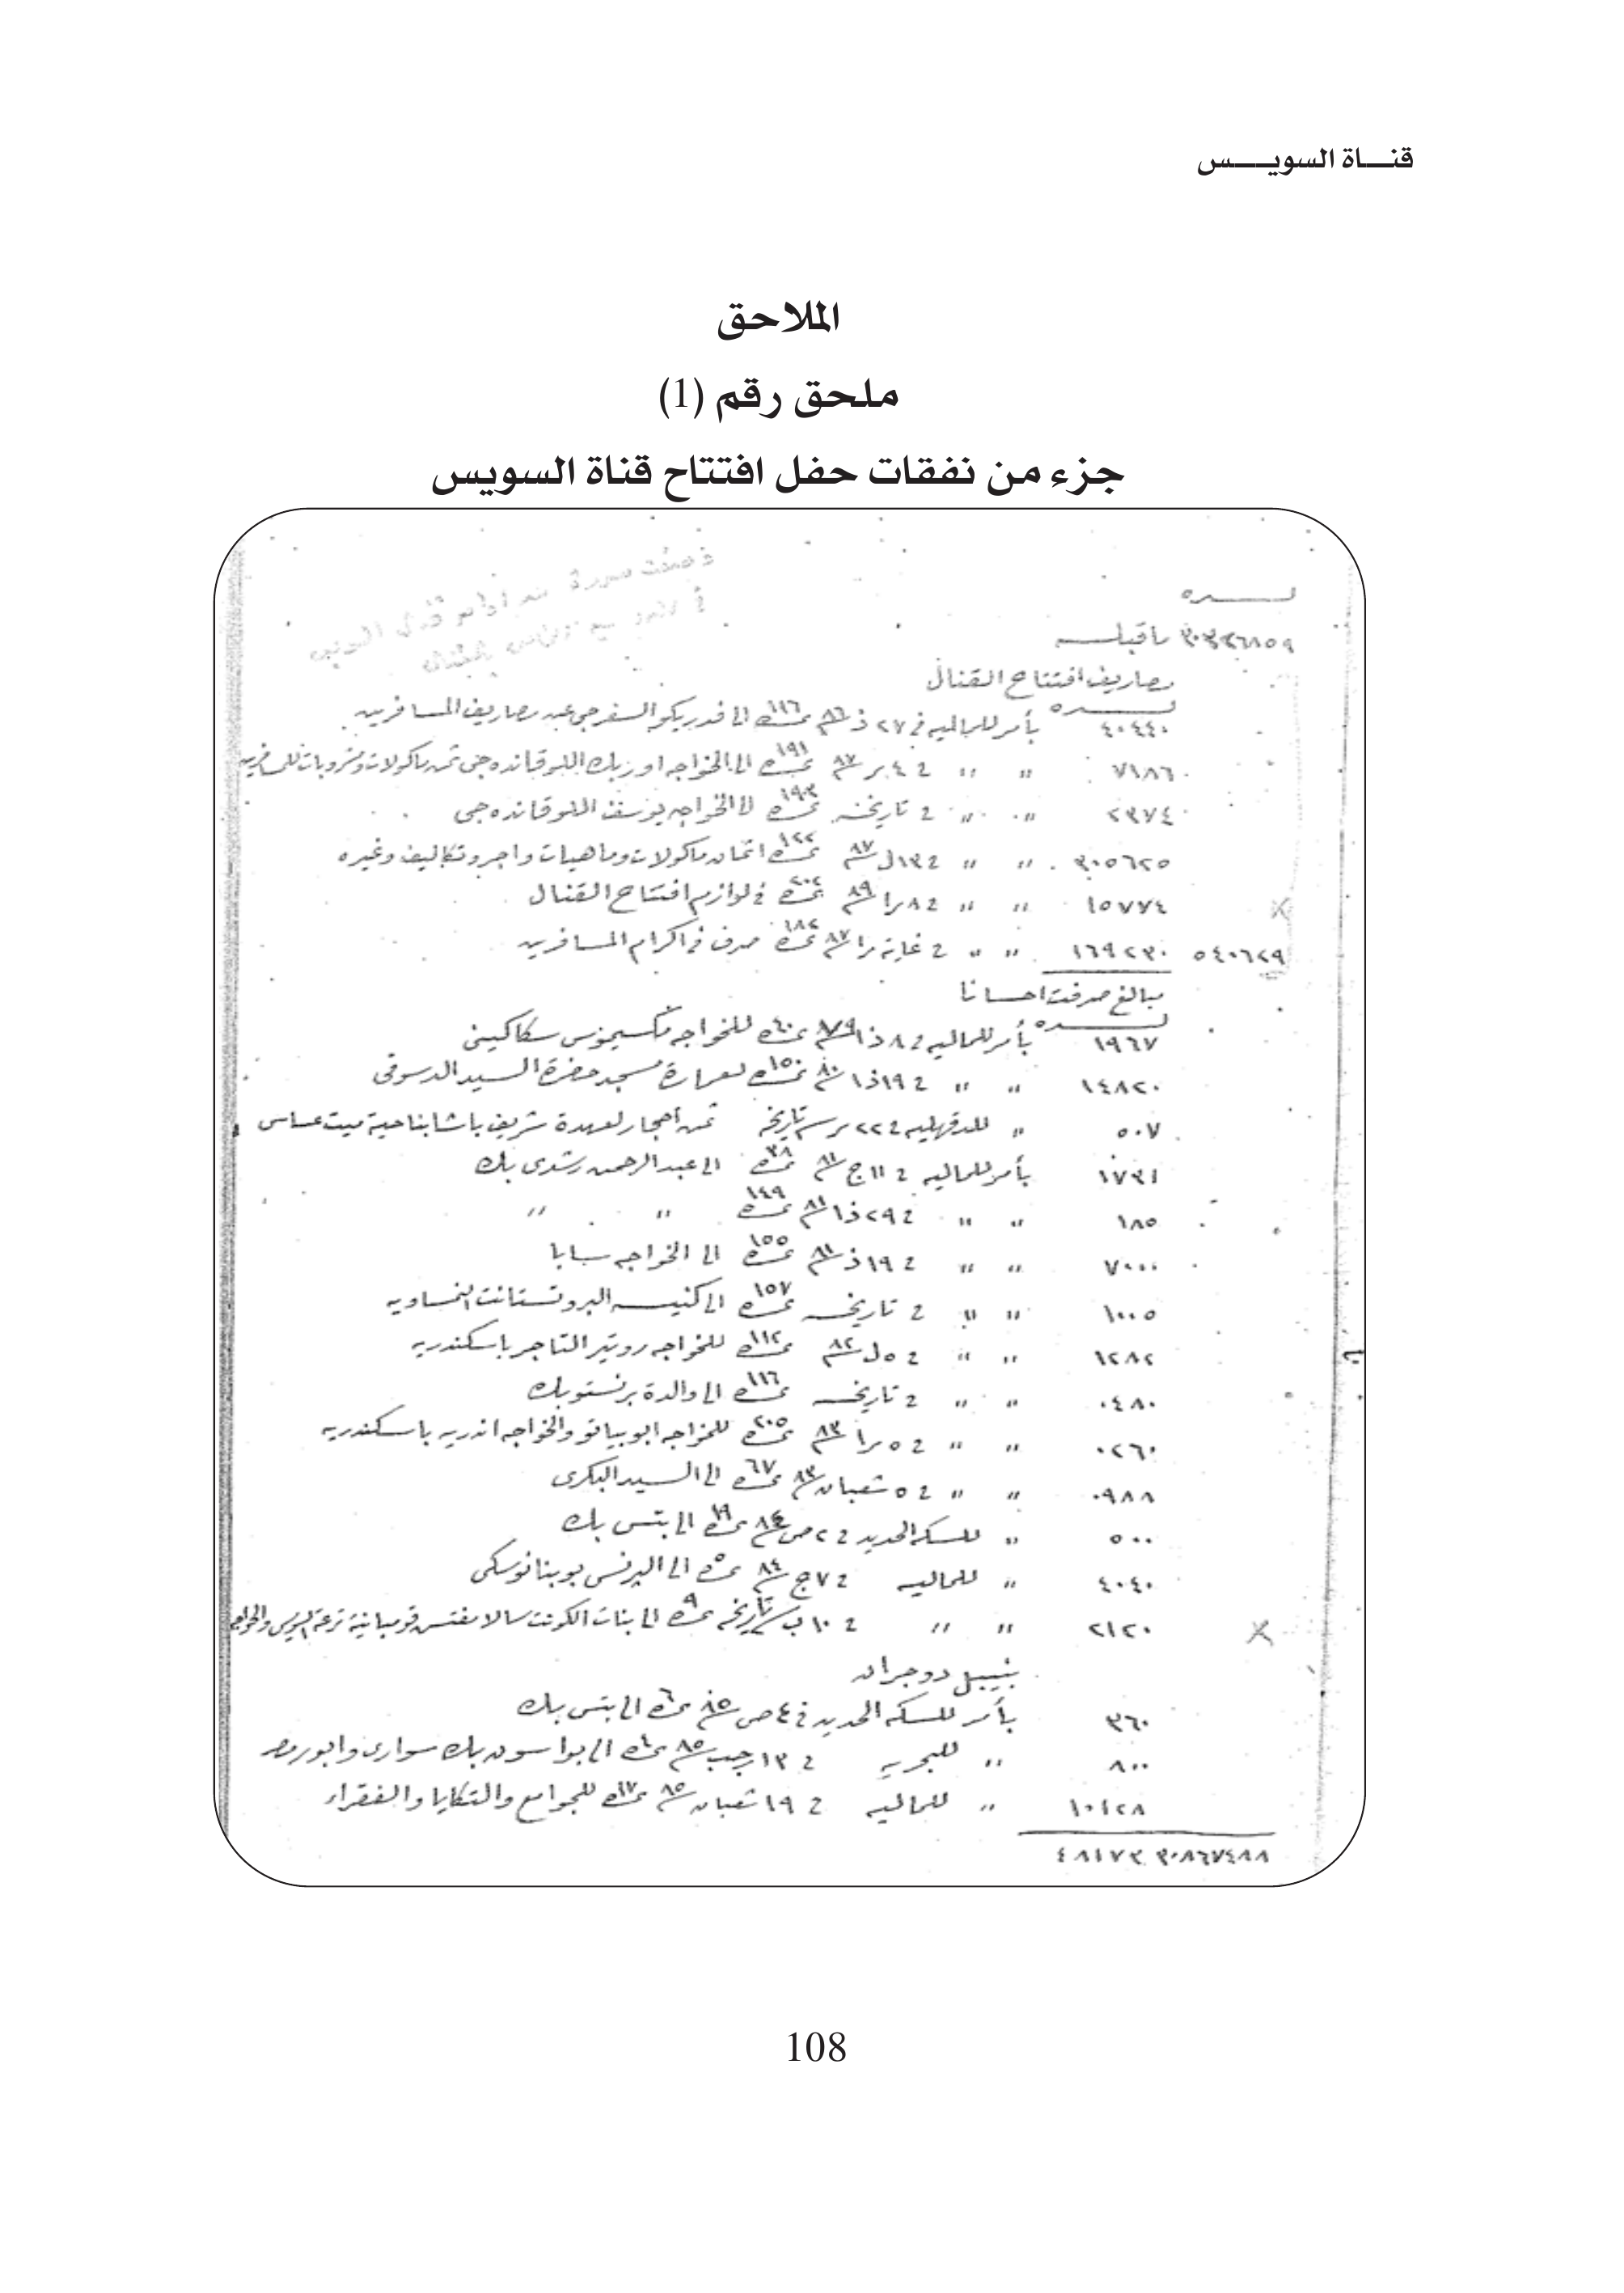 قنـــاة السويــــس
الملاحق
ملحق رقم (1)
جزء من نفقات حفل افتتاح قناة السويس
لـــــره
٣٠٣٢٦٨٥٩ ماقبله
مصاريف افتتاح القنال
لـــــره
٤٠٤٤٠ بأمر للماليه في ٢٧ ذ ٨٦ نمرة ١١٦ الى فدريكو السفرجي عن مصاريف المسافرين
٧١٨٦ " " في ٤ ر ٨٧ نمرة ١٩١ الى الخواجه اوزبك اللوقانده جى ثمن ماكولات ومشروبات للمسافرين
٢٣٧٤ " " في تاريخه نمرة ١٩٣ الى الخواجه يوسف اللوقانده جى
٣٠٥٦٢٥ " " في ١٣ ل ٨٧ نمرة ١٢٢ اثمان ماكولات وماهيات واجر وتكاليف وغيره
١٥٧٧٤ " " في ٨ را ٨٩ نمرة ٢٠٢ في لوازم افتتاح القنال
٥٤٠٦٢٩ ١٦٩٢٣٠ " " في غاية را ٨٧ نمرة ١٨٢ صرف في اكرام المسافرين
مبالغ صرفت احسانا
لـــــره
١٩٦٧ بأمر للماليه في ٨ ذا ٧٩ نمرة ٤٠ للخواجه مكسيموس سكاكينى
١٤٨٢٠ " " في ١٩ ذا ٨٠ نمرة ١٥٠ لعمارة مسجد حضرة السيد الدسوقى
٥٠٧ " للدقهليه في ٢٢ تاريخه ثمن أحجار لعهدة شريف باشا بناحية ميت عساس
١٧٣١ بأمر للماليه في ١١ ج ٨١ نمرة ٣٨ الى عبد الرحمن رشدى بك
١٨٥ " " في ٢٩ ذا ٨١ نمرة ١٤٩ " "
٧٠٠٠ " " في ١٩ ذ ٨١ نمرة ١٥٥ الى الخواجه سابا
١٠٠٥ " " في تاريخه نمرة ١٥٧ الى كنيسه البروتستانت النمساويه
١٢٨٢ " " في ٥ ل ٨٢ نمرة ١١٢ للخواجه روتير التاجر باسكندريه
٠٤٨٠ " " في تاريخه نمرة ١١٦ الى والدة برنستو بك
٠٢٦٠ " " في ٥ را ٨٣ نمرة ٢٠٥ للخواجه ابوبياتو والخواجه اندريه باسكندريه
٠٩٨٨ " " في ٥ شعبان ٨٣ نمرة ٦٧ الى السيد البكرى
٥٠٠ " للسكه الحديد في ٢ ص ٨٤ نمرة ١٩ الى بتس بك
٤٠٤٠ " للماليه في ٧ ج ٨٤ نمرة ٥ الى البرنس بوبنانوسكى
٢١٢٠ " " في ١٠ ب تاريخه نمرة ٩ الى بنات الكونت سالا مفتس قومبانية ترعة السويس والخواجه
بنيبيل دوجران
٣٦٠ بأمر للسكه الحديد في ٤ ص ٨٥ نمرة ٦ الى بتس بك
٨٠٠ " للبحريه في ١٣ رجب ٨٥ الى بواسون بك سوارى وابور مصر
١٠١٢٨ " للماليه في ١٩ شعبان ٨٥ نمرة ١٧ للجوامع والتكايا والفقراء
٣٠٨٦٧٤٨٨ ٤٨١٧٣
108